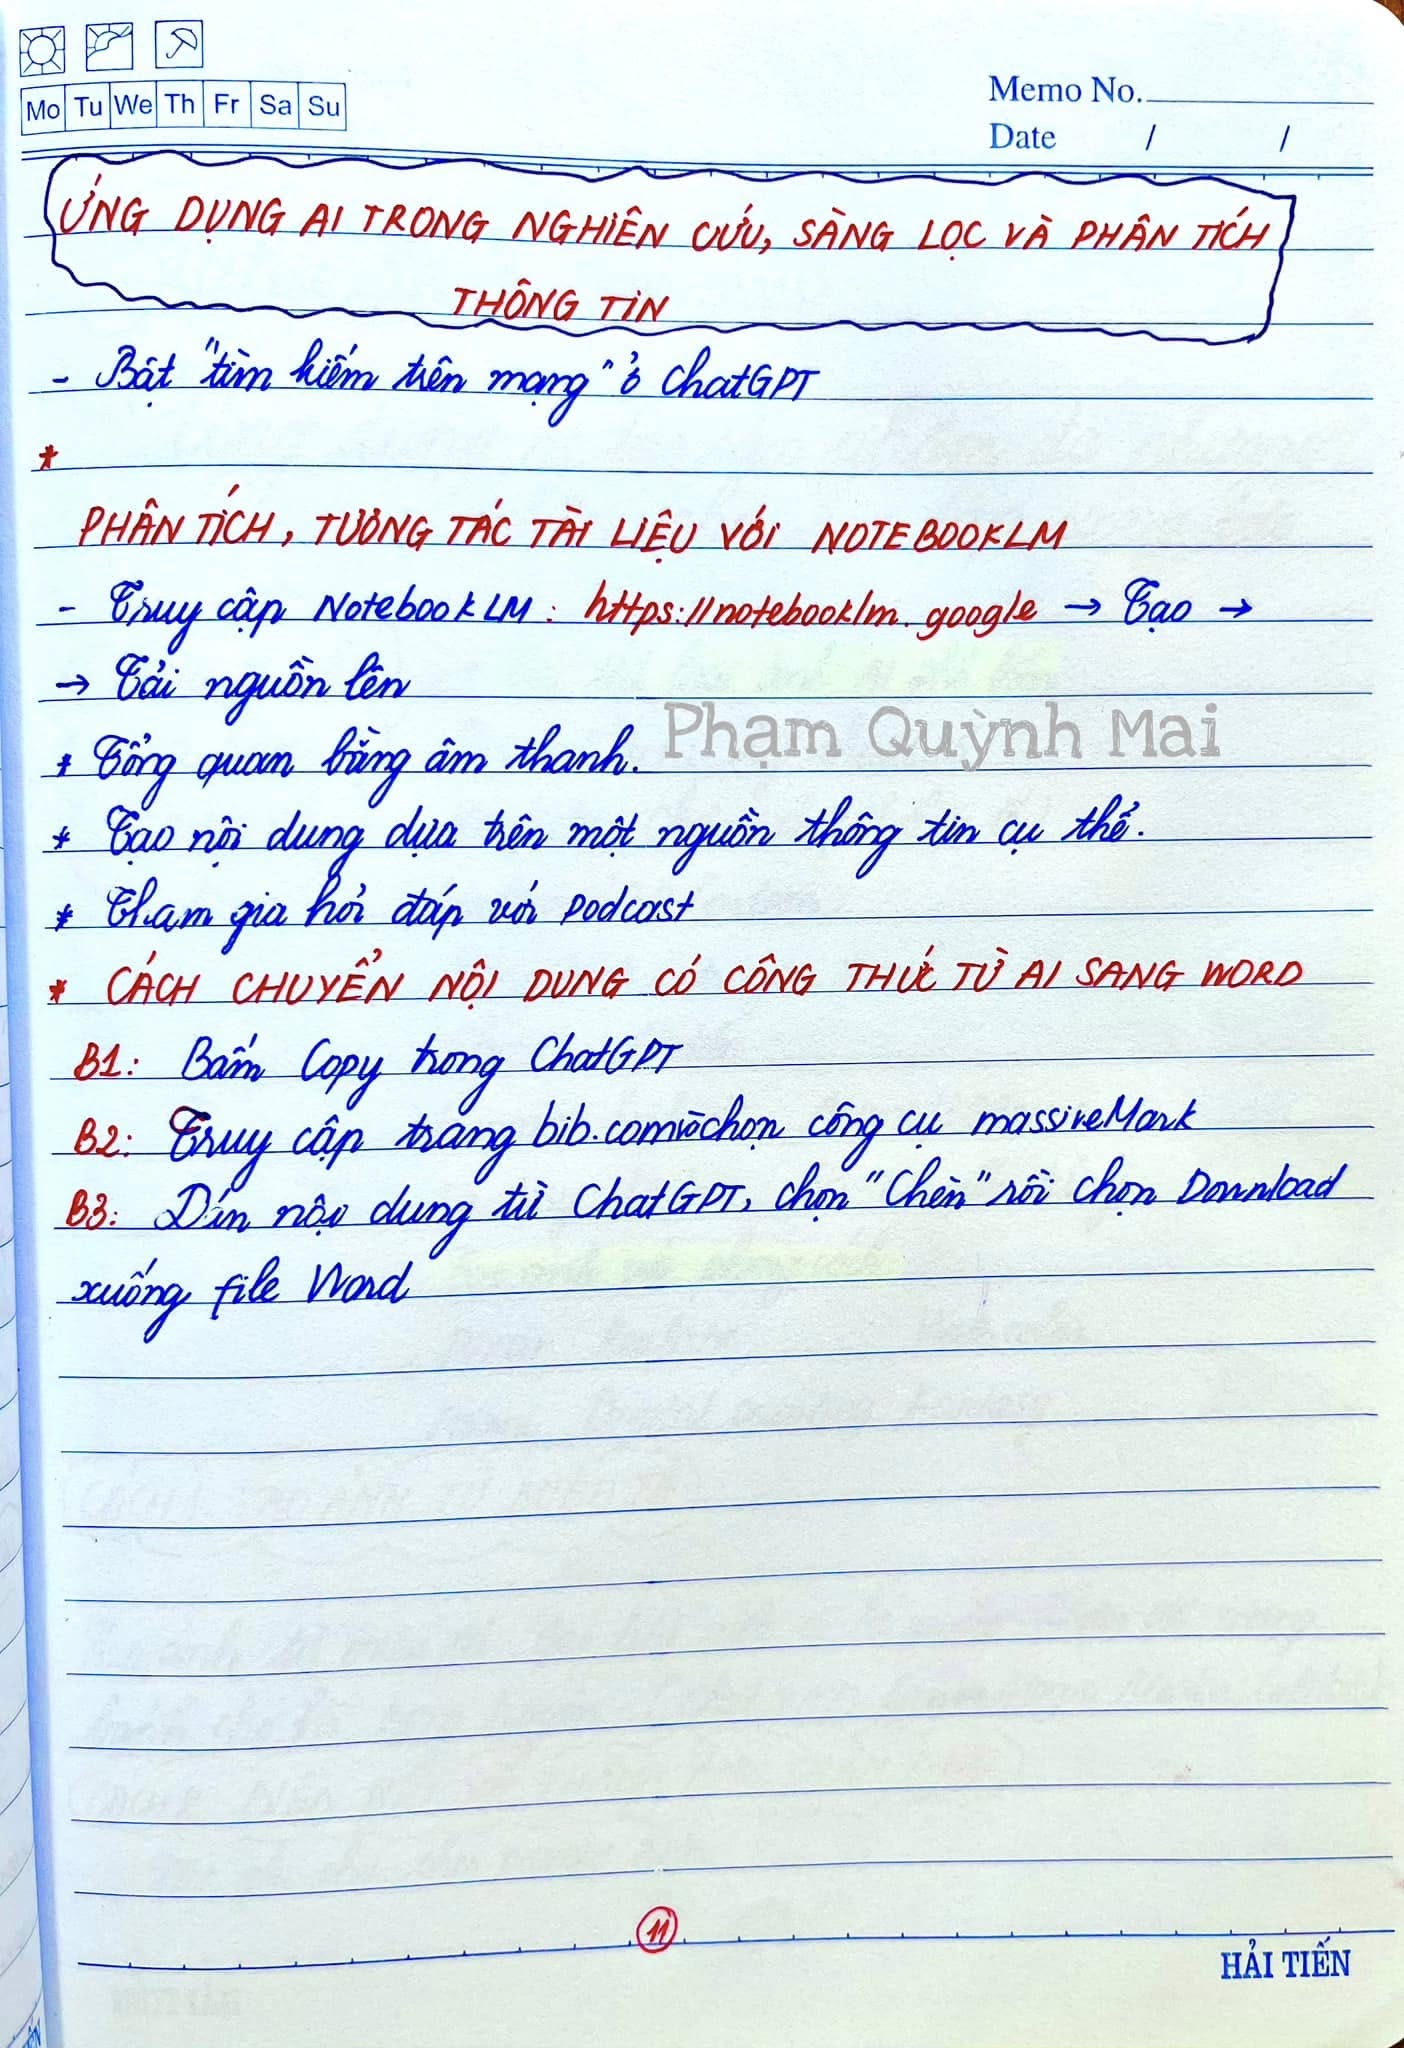 Mo Tu We Th Fr Sa Su
Memo No.
Date / /
ỨNG DỤNG AI TRONG NGHIÊN CỨU, SÀNG LỌC VÀ PHÂN TÍCH
THÔNG TIN
- Bật "tìm kiếm trên mạng" ở ChatGPT
*
PHÂN TÍCH, TƯƠNG TÁC TÀI LIỆU VỚI NOTEBOOKLM
- Truy cập NotebookLM: https://notebooklm.google → Tạo →
→ Tải nguồn lên
Phạm Quỳnh Mai
* Tổng quan bằng âm thanh.
* Tạo nội dung dựa trên một nguồn thông tin cụ thể.
* Tham gia hỏi đáp với podcast
* CÁCH CHUYỂN NỘI DUNG CÓ CÔNG THỨC TỪ AI SANG WORD
B1: Bấm Copy trong ChatGPT
B2: Truy cập trang bib.com và chọn công cụ massiveMark
B3: Dán nội dung từ ChatGPT, chọn "Chèn" rồi chọn Download
xuống file Word
11
HẢI TIẾN